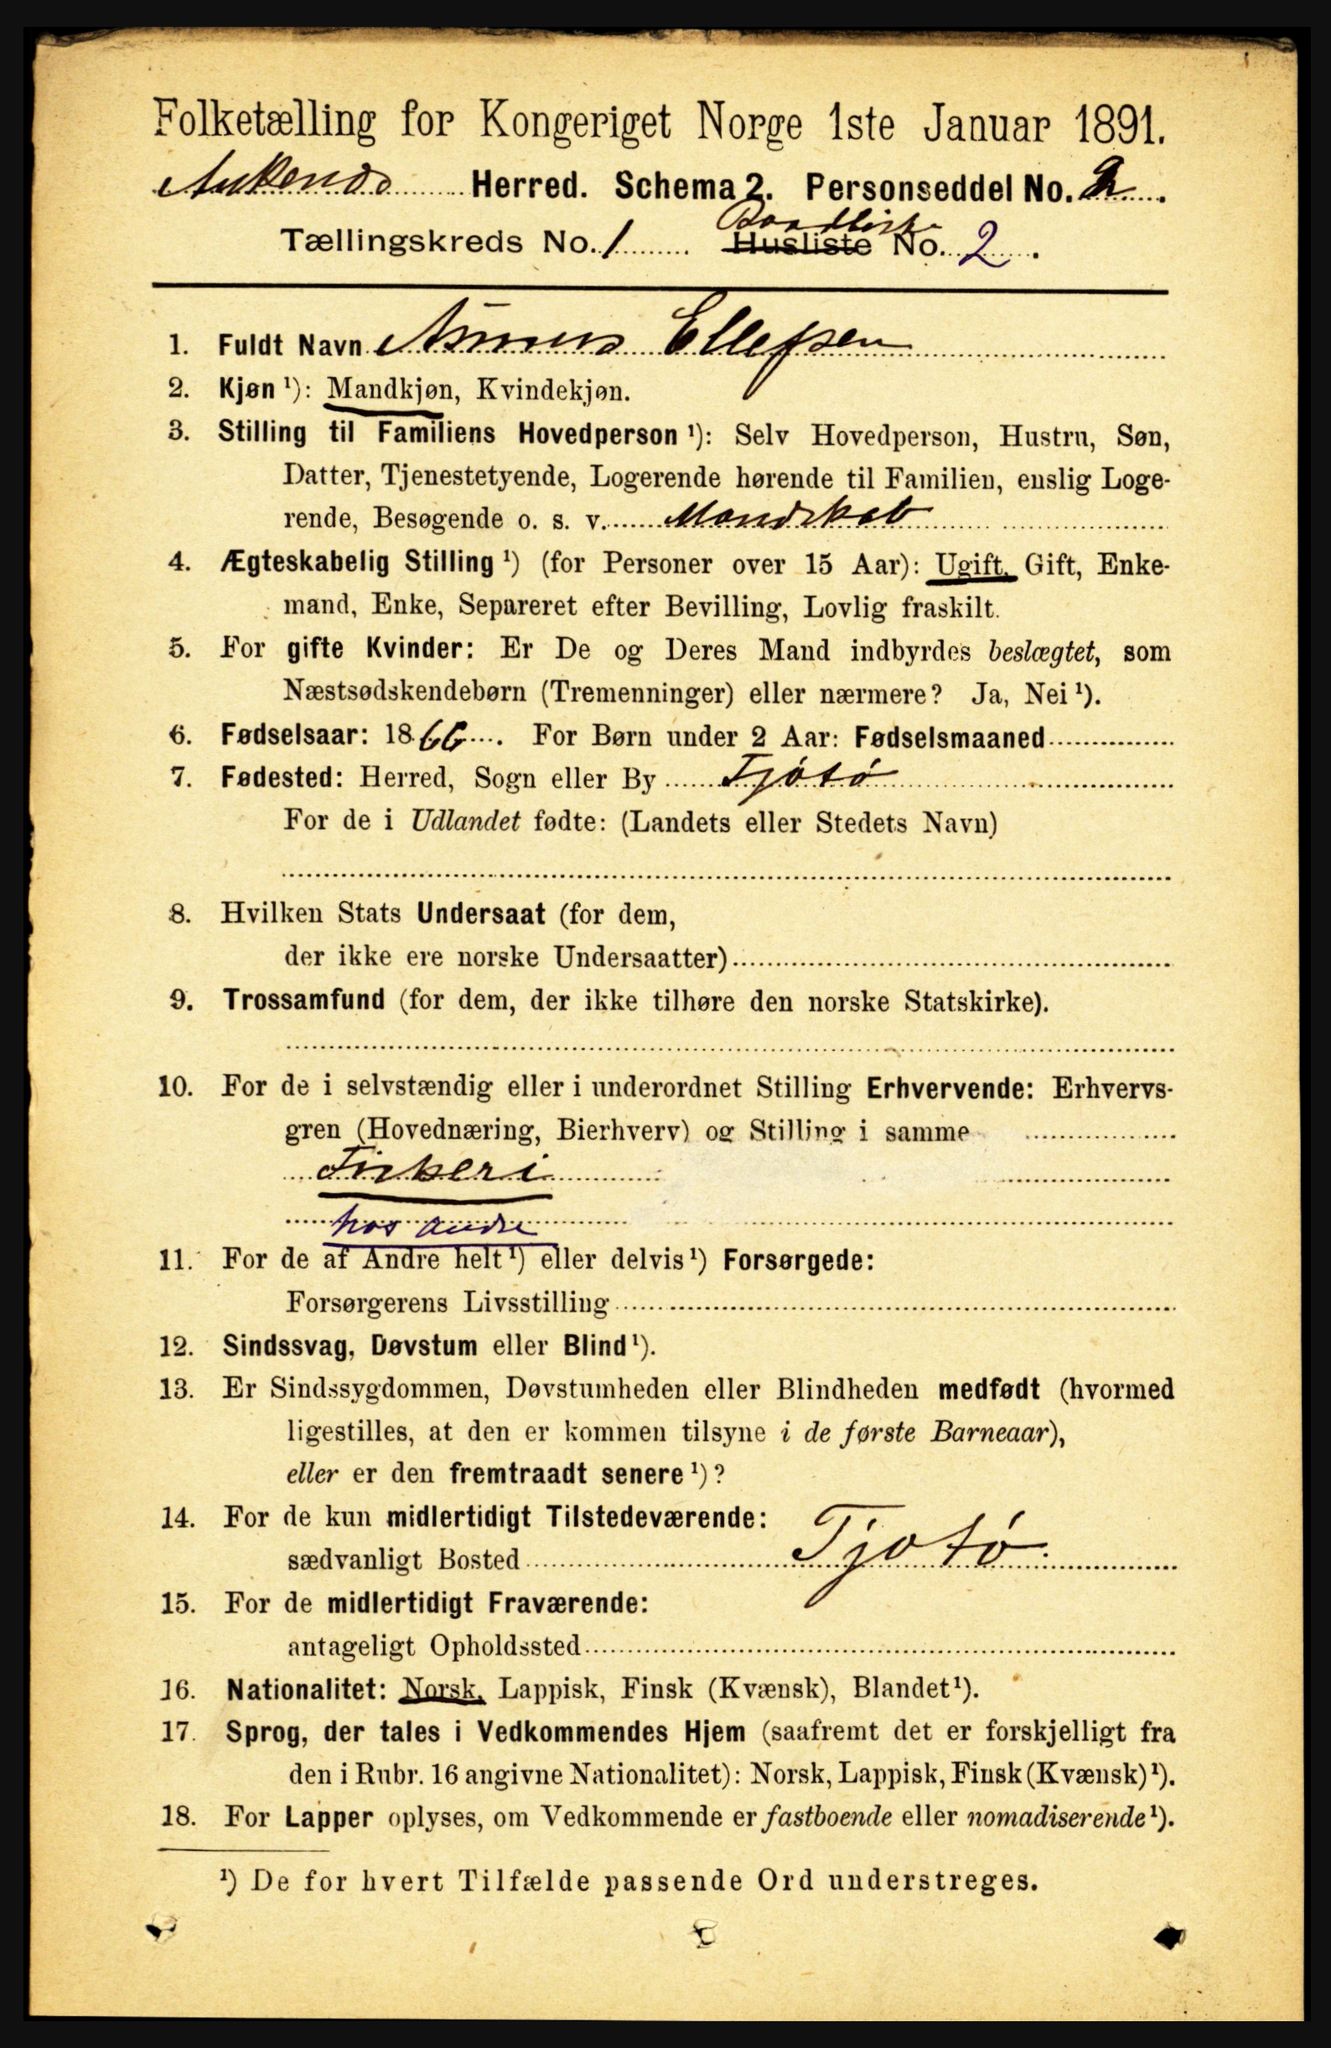 Folketælling for Kongeriget Norge 1ste Januar 1891.
Ankenes Herred. Schema 2. Personseddel No. 2
Baadliste
Tællingskreds No. 1 Husliste No. 2
1. Fuldt Navn Ellefsen
2. Kjøn ¹): Mandkjøn, Kvindekjøn.
3. Stilling til Familiens Hovedperson ¹): Selv Hovedperson, Hustru, Søn,
Datter, Tjenestetyende, Logerende hørende til Familien, enslig Loge-
rende, Besøgende o. s. v. Mandskab
4. Ægteskabelig Stilling ¹) (for Personer over 15 Aar): Ugift, Gift, Enke-
mand, Enke, Separeret efter Bevilling, Lovlig fraskilt.
5. For gifte Kvinder: Er De og Deres Mand indbyrdes beslægtet, som
Næstsødskendebørn (Tremenninger) eller nærmere? Ja, Nei ¹).
6. Fødselsaar: 1866. For Børn under 2 Aar: Fødselsmaaned
7. Fødested: Herred, Sogn eller By Tjøtø
For de i Udlandet fødte: (Landets eller Stedets Navn)
8. Hvilken Stats Undersaat (for dem,
der ikke ere norske Undersaatter)
9. Trossamfund (for dem, der ikke tilhøre den norske Statskirke).
10. For de i selvstændig eller i underordnet Stilling Erhvervende: Erhvervs-
gren (Hovednæring, Bierhverv) og Stilling i samme
Fiskeri
hos andre
11. For de af Andre helt ¹) eller delvis ¹) Forsørgede:
Forsørgerens Livsstilling
12. Sindssvag, Døvstum eller Blind ¹).
13. Er Sindssygdommen, Døvstumheden eller Blindheden medfødt (hvormed
ligestilles, at den er kommen tilsyne i de første Barneaar),
eller er den fremtraadt senere ¹)?
14. For de kun midlertidigt Tilstedeværende:
sædvanligt Bosted Tjøtø
15. For de midlertidigt Fraværende:
antageligt Opholdssted
16. Nationalitet: Norsk, Lappisk, Finsk (Kvænsk), Blandet ¹).
17. Sprog, der tales i Vedkommendes Hjem (saafremt det er forskjelligt fra
den i Rubr. 16 angivne Nationalitet): Norsk, Lappisk, Finsk (Kvænsk) ¹).
18. For Lapper oplyses, om Vedkommende er fastboende eller nomadiserende ¹).
¹) De for hvert Tilfælde passende Ord understreges.